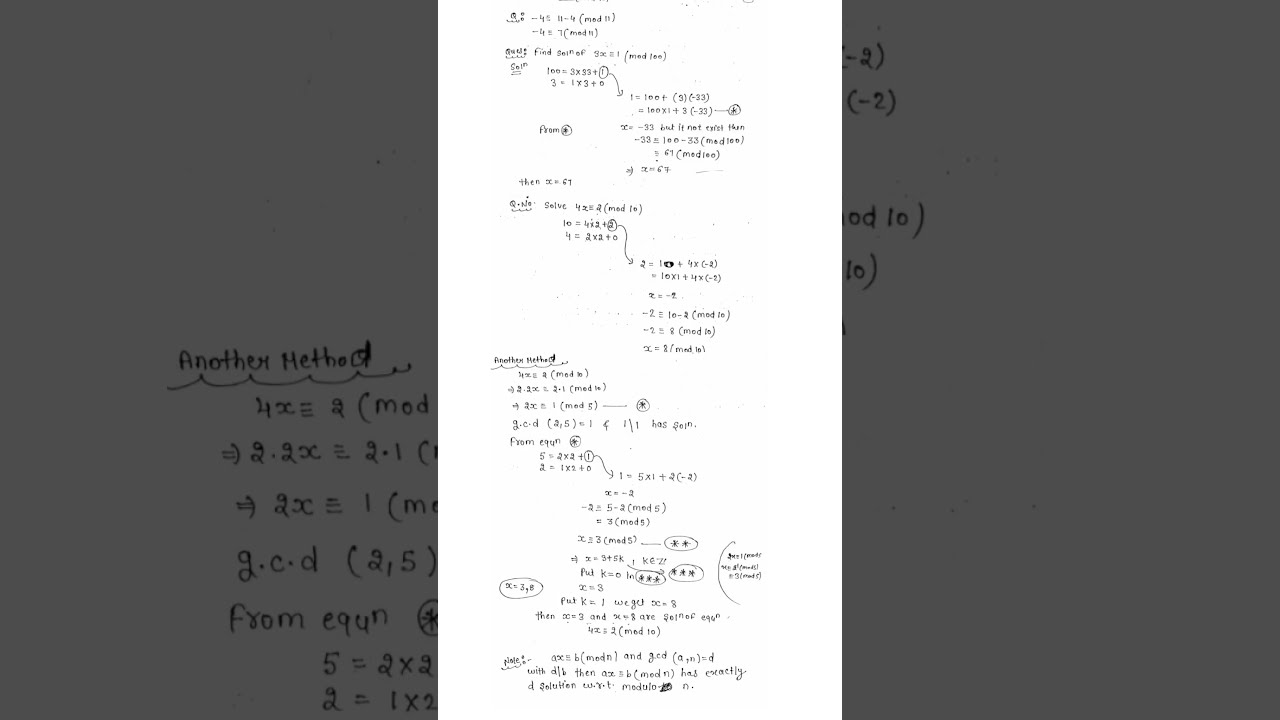 Q: -4 ≡ 11-4 (mod 11)
-4 ≡ 7 (mod 11)
Ques: Find soln of 3x ≡ 1 (mod 100)
Soln
100 = 3×33+1
3 = 1×3+0
1 = 100 + (3)(-33)
= 100×1 + 3(-33) — *
From *
x = -33 but it not exist then
-33 ≡ 100-33 (mod 100)
≡ 67 (mod 100)
⇒ x = 67
then x = 67
Q.No. Solve 4x ≡ 2 (mod 10)
10 = 4×2+2
4 = 2×2+0
2 = 10 + 4×(-2)
= 10×1 + 4×(-2)
x = -2
-2 ≡ 10-2 (mod 10)
-2 ≡ 8 (mod 10)
x = 8 (mod 10)
Another Method
4x ≡ 2 (mod 10)
⇒ 2.2x ≡ 2.1 (mod 10)
⇒ 2x ≡ 1 (mod 5) — *
g.c.d (2,5) = 1 & 1\1 has soln.
From equn *
5 = 2×2+1
2 = 1×2+0
1 = 5×1 + 2(-2)
x = -2
-2 ≡ 5-2 (mod 5)
= 3 (mod 5)
x ≡ 3 (mod 5) — **
⇒ x = 3+5k, k∈Z ***
Put k=0 in ***
x = 3
x = 3,8
2x ≡ 1 (mod 5
≡ 3 (mod 5)
Put k = 1 we get x = 8
then x=3 and x=8 are soln of equn.
4x ≡ 2 (mod 10)
Note:- ax ≡ b (mod n) and gcd (a,n)=d
with d/b then ax ≡ b (mod n) has exactly
d solution w.r.t. modulo n.